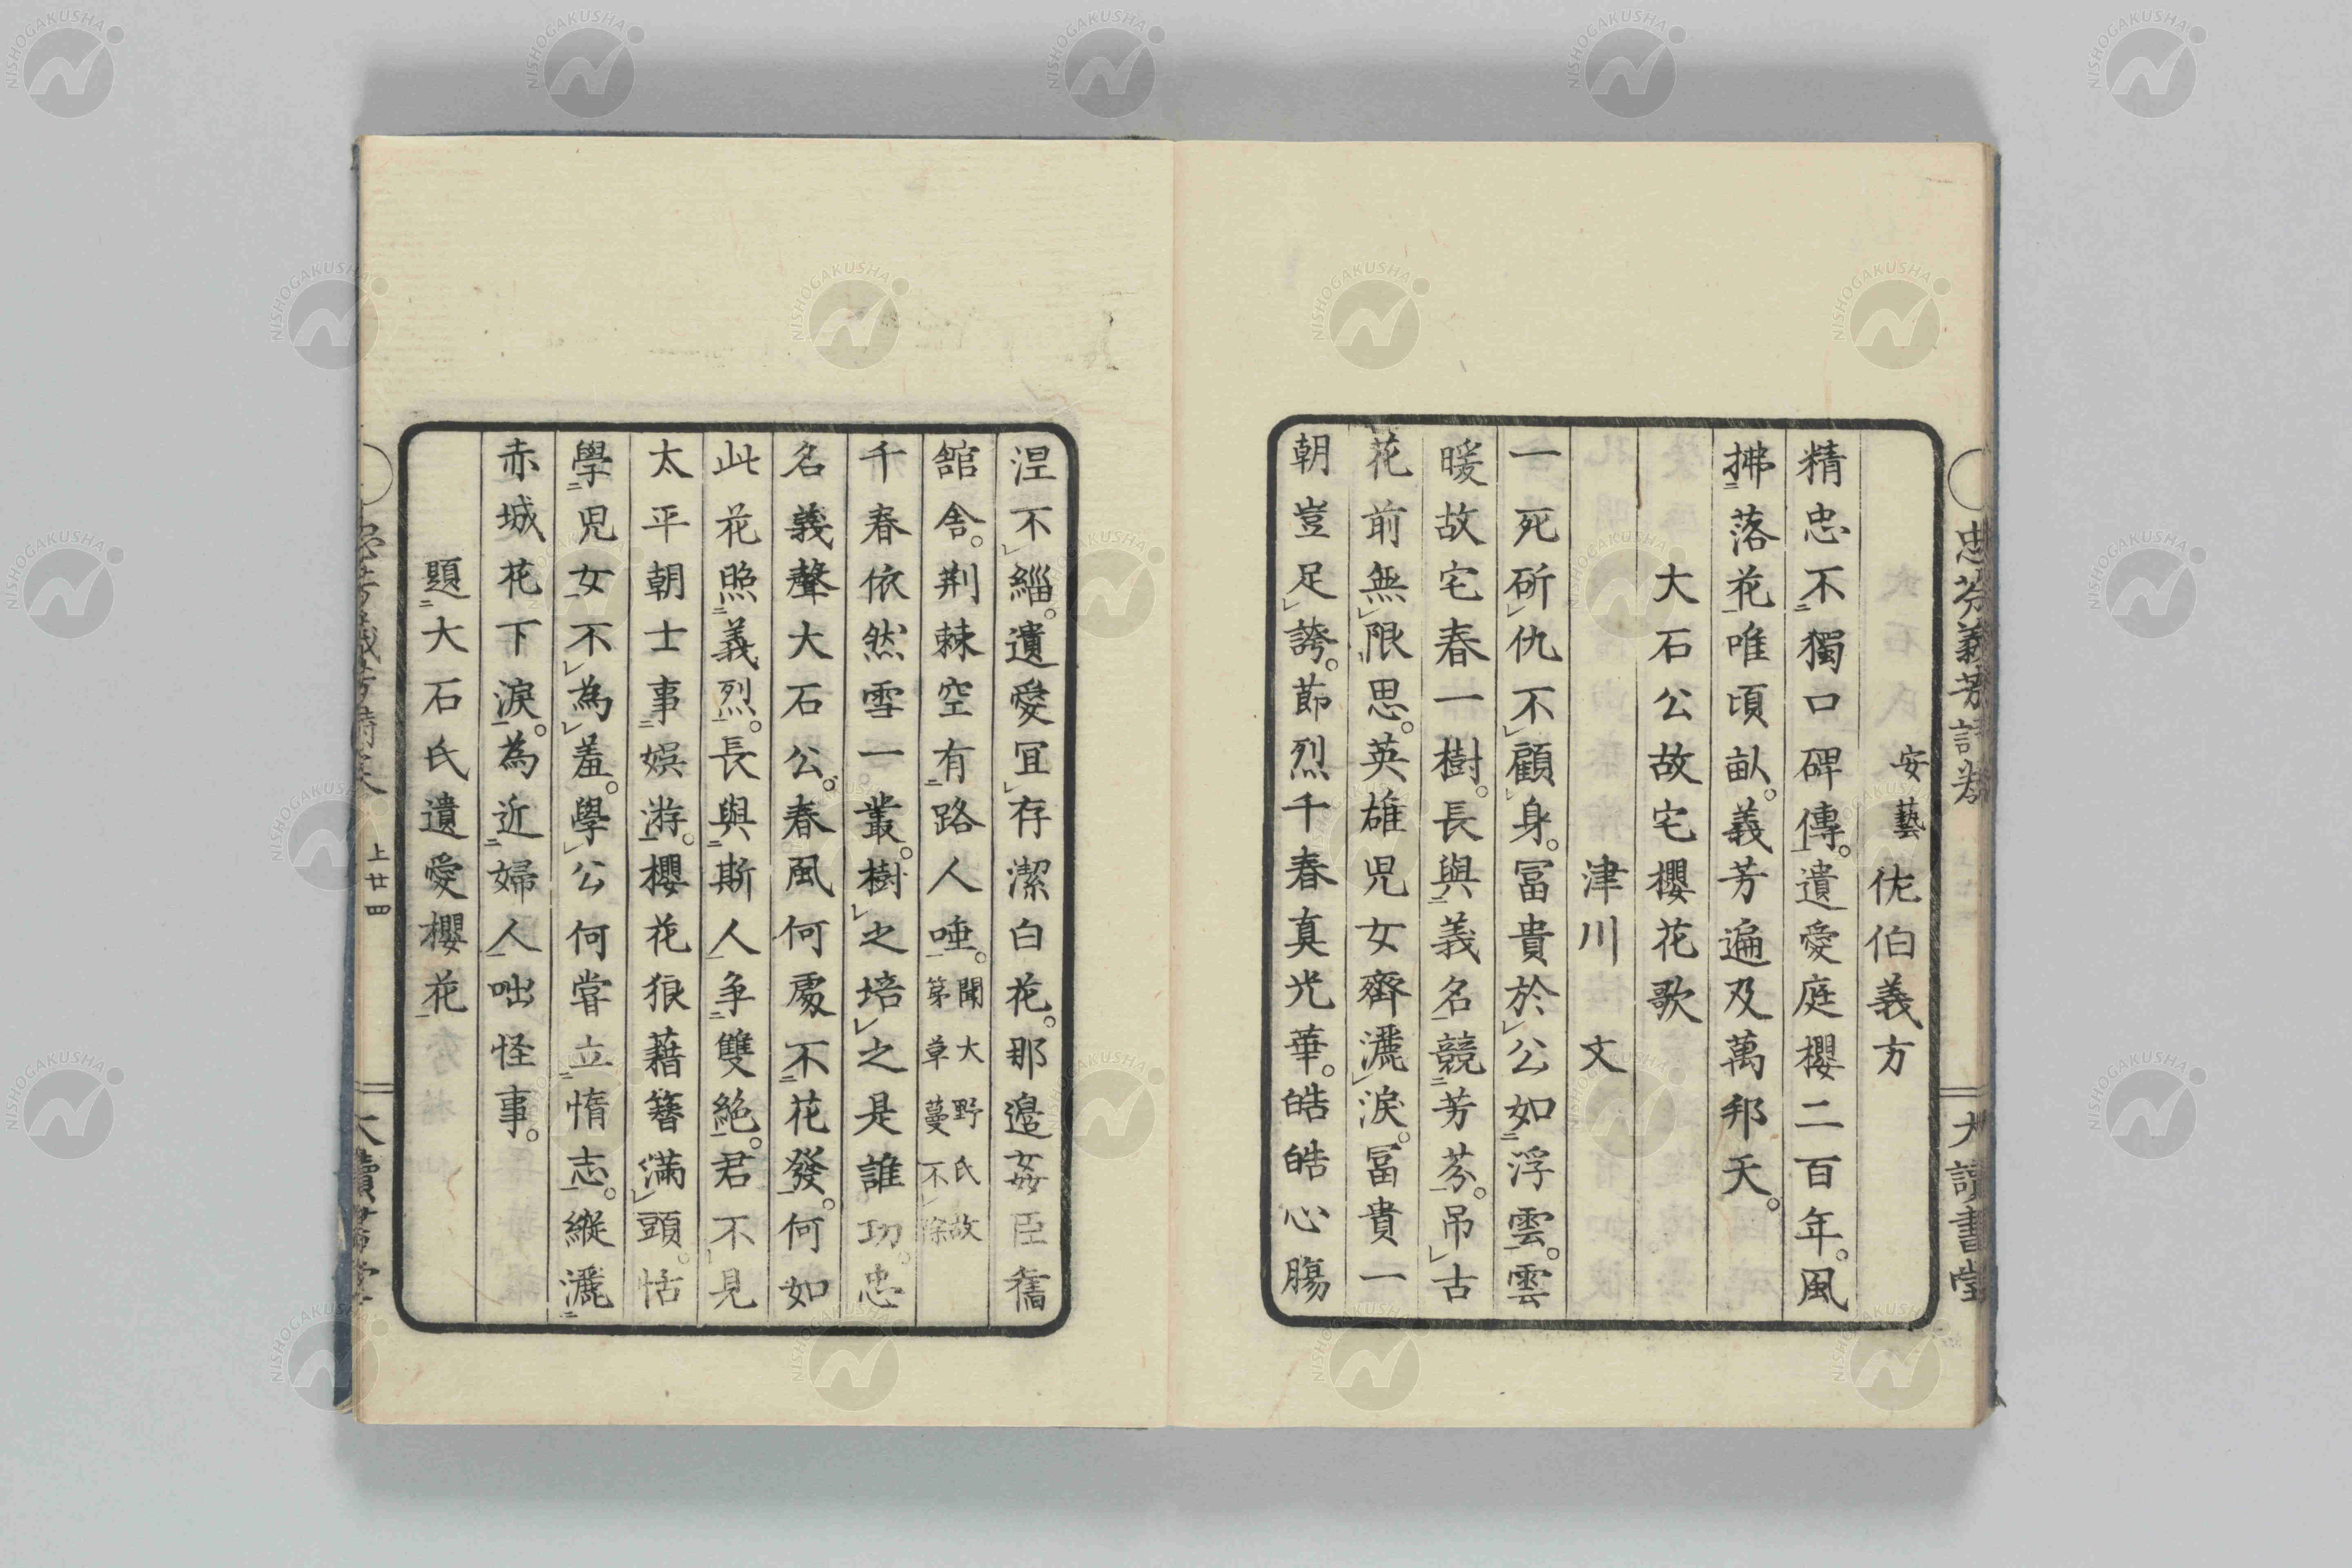 忠芬義芳詩卷
大讀書堂
安藝 佐伯義方
精忠不獨口碑傳。遺愛庭櫻二百年。風
拂落花唯頃畝。義芳遍及萬邦天。
大石公故宅櫻花歌
津川 文
一死斫仇不顧身。冨貴於公如浮雲。雲
暖故宅春一樹。長與義名競芳芬。吊古
花前無限思。英雄児女齊灑淚。冨貴一
朝豈足誇。節烈千春真光華。皓皓心膓
涅不緇。遺愛宜存潔白花。那邉姦臣舊
舘舎。荆棘空有路人唾。聞大野氏故
第草蔓不除
千春依然雪一叢。樹之培之是誰功。忠
名義聲大石公。春風何處不花發。何如
此花照義烈。長與斯人争雙絶。君不見
太平朝士事娯游。櫻花狼藉簪满頭。恬
學児女不為羞。學公何嘗立惰志。縦灑
赤城花下淚。為近婦人咄怪事。
題大石氏遺愛櫻花
上廿四
大讀書堂
NISHOGAKUSHA